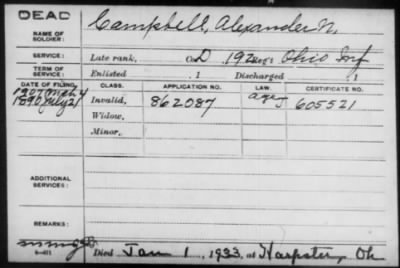 DEAD
NAME OF SOLDIER: Campbell, Alexander N.
SERVICE: Late rank, Co. D, 192 Reg't Ohio Inf
TERM OF SERVICE: Enlisted , 1 Discharged , 1
DATE OF FILING. CLASS. APPLICATION NO. LAW. CERTIFICATE NO.
1907 Mch 4
1890 July 21 Invalid, 862087 age 605521
Widow,
Minor,
ADDITIONAL SERVICES:
REMARKS:
Died Jan 1, 1933, at Harpster, Oh